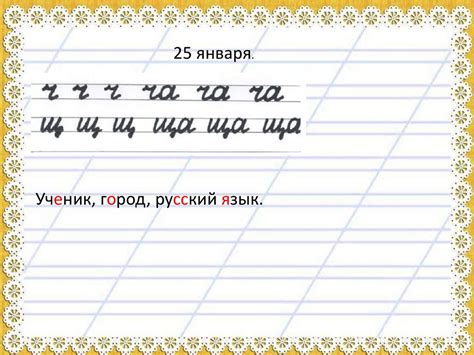 25 января.
ч ч ч ча ча ча
щ щ щ ща ща ща
Ученик, город, русский язык.